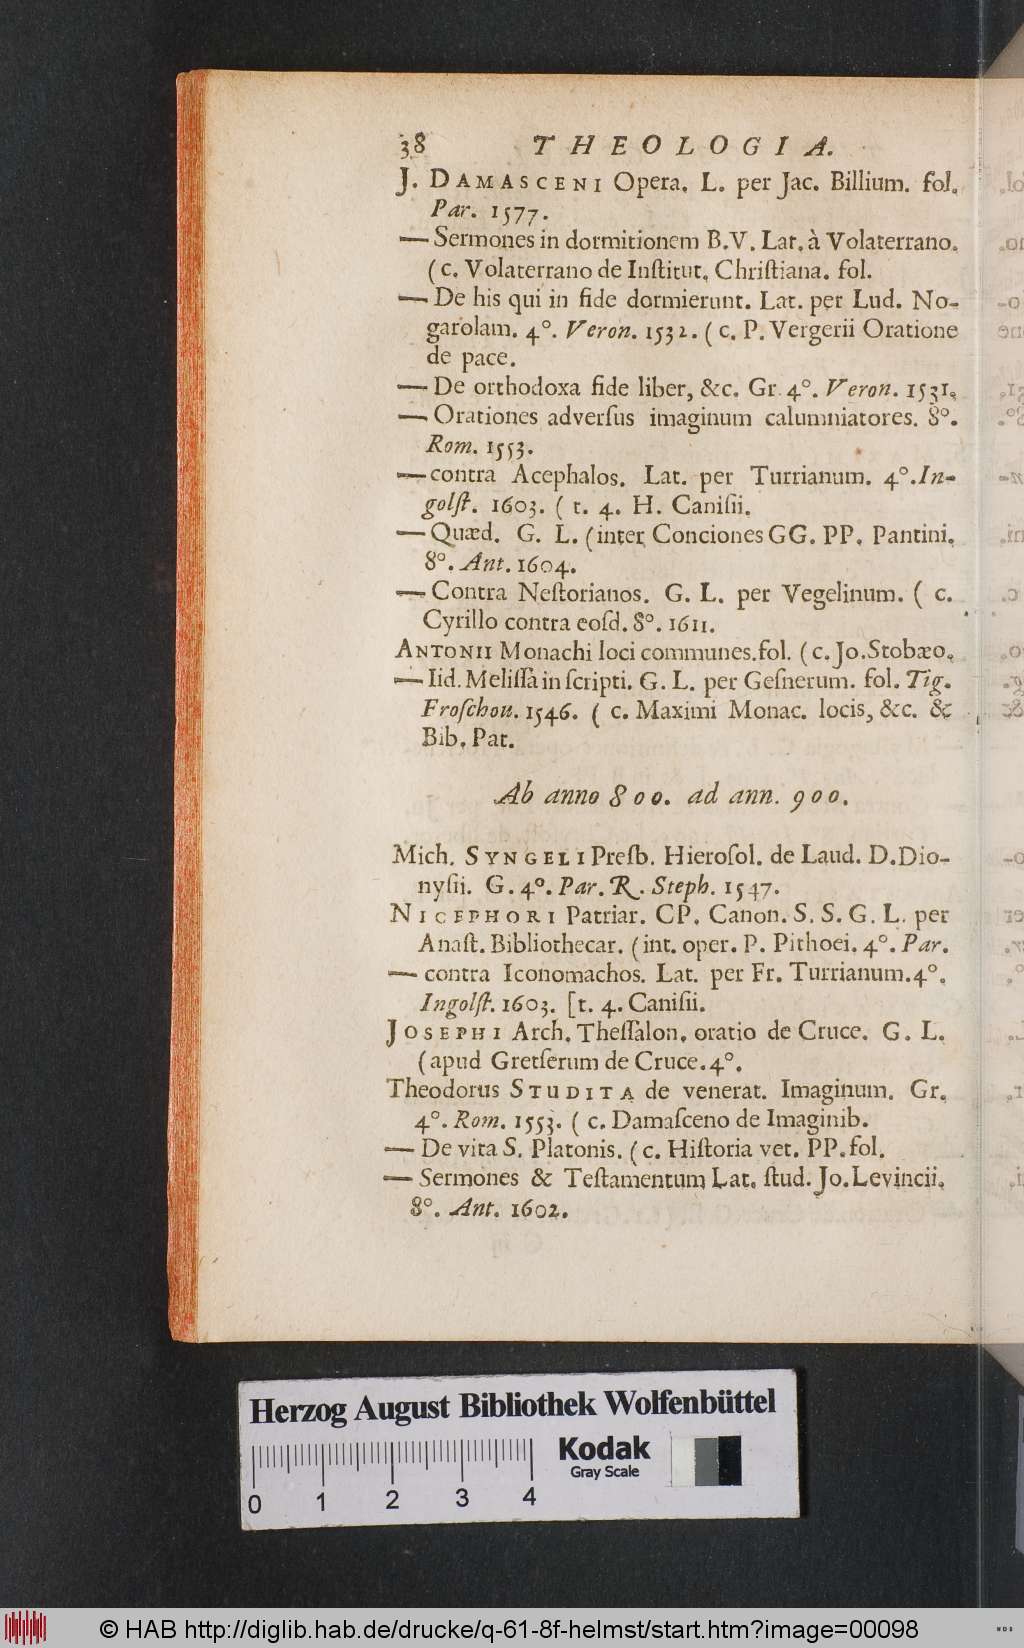 38 THEOLOGIA.
J. DAMASCENI Opera. L. per Jac. Billium. fol.
Par. 1577.
— Sermones in dormitionem B.V. Lat. à Volaterrano.
(c. Volaterrano de Inſtitut. Chriſtiana. fol.
— De his qui in fide dormierunt. Lat. per Lud. No-
garolam. 4°. Veron. 1532. (c. P. Vergerii Oratione
de pace.
— De orthodoxa fide liber, &c. Gr. 4°. Veron. 1531.
— Orationes adverſus imaginum calumniatores. 8°.
Rom. 1553.
— contra Acephalos. Lat. per Turrianum. 4°. In-
golſt. 1603. (t. 4. H. Caniſii.
— Quæd. G. L. (inter Conciones GG. PP. Pantini.
8°. Ant. 1604.
— Contra Neſtorianos. G. L. per Vegelinum. (c.
Cyrillo contra eoſd. 8°. 1611.
ANTONII Monachi loci communes. fol. (c. Jo. Stobæo.
— Iid. Meliſſa inſcripti. G. L. per Geſnerum. fol. Tig.
Froſchou. 1546. (c. Maximi Monac. locis, &c. &
Bib. Pat.
Ab anno 800. ad ann. 900.
Mich. SYNGELI Presb. Hieroſol. de Laud. D. Dio-
nyſii. G. 4°. Par. R. Steph. 1547.
NICEPHORI Patriar. CP. Canon. S. S. G. L. per
Anaſt. Bibliothecar. (int. oper. P. Pithoei. 4°. Par.
— contra Iconomachos. Lat. per Fr. Turrianum. 4°.
Ingolſt. 1603. [t. 4. Caniſii.
JOSEPHI Arch. Theſſalon. oratio de Cruce. G. L.
(apud Gretſerum de Cruce. 4°.
Theodorus STUDITA de venerat. Imaginum. Gr.
4°. Rom. 1553. (c. Damaſceno de Imaginib.
— De vita S. Platonis. (c. Hiſtoria vet. PP. fol.
— Sermones & Teſtamentum Lat. ſtud. Jo. Levincii.
8°. Ant. 1602.
Herzog August Bibliothek Wolfenbüttel
Kodak
Gray Scale
0 1 2 3 4
© HAB http://diglib.hab.de/drucke/q-61-8f-helmst/start.htm?image=00098